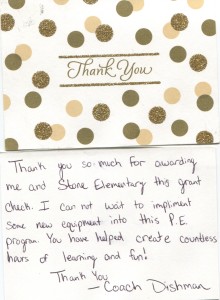 Thank You
Thank you so much for awarding
me and Stone Elementary this grant
check. I can not wait to impliment
some new equipment into this P.E
program. You have helped create countless
hours of learning and fun!
Thank You
- Coach Dishman